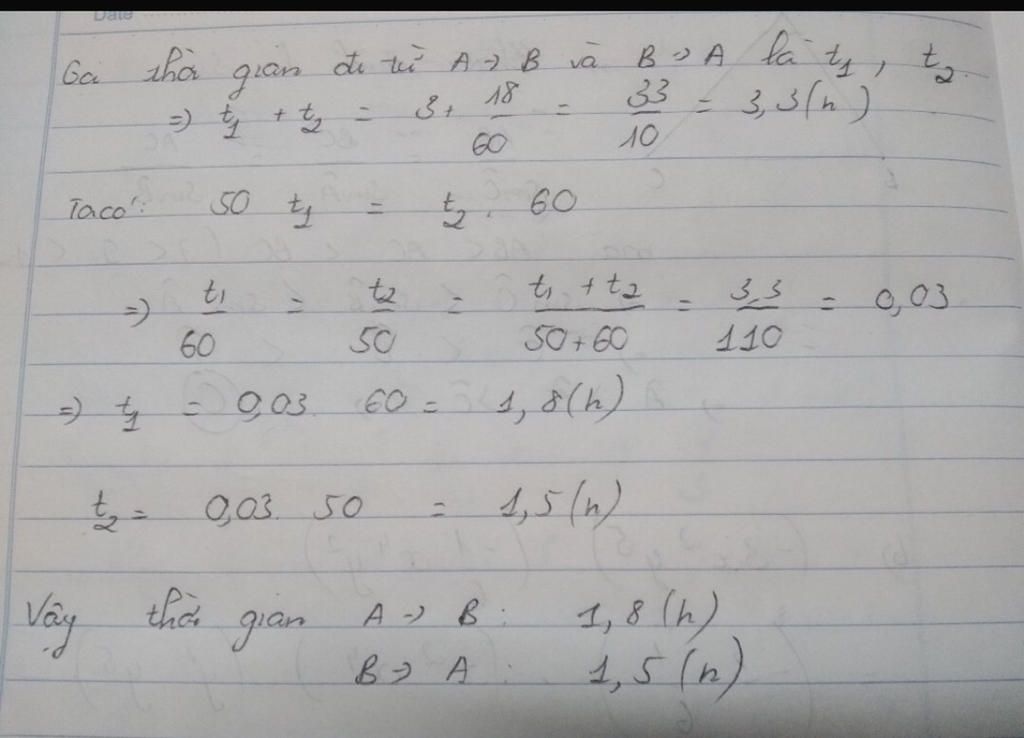 Date
Gọi thời gian đi từ A → B và B → A là t₁, t₂.
⇒ t₁ + t₂ = 3 + 18/60 = 33/10 = 3,3 (h)
Ta có: 50 t₁ = t₂ . 60
⇒ t₁/60 = t₂/50 = (t₁ + t₂)/(50 + 60) = 3,3/110 = 0,03
⇒ t₁ = 0,03 60 = 1,8 (h)
t₂ = 0,03. 50 = 1,5 (h)
Vậy thời gian A → B : 1,8 (h)
B → A : 1,5 (h)